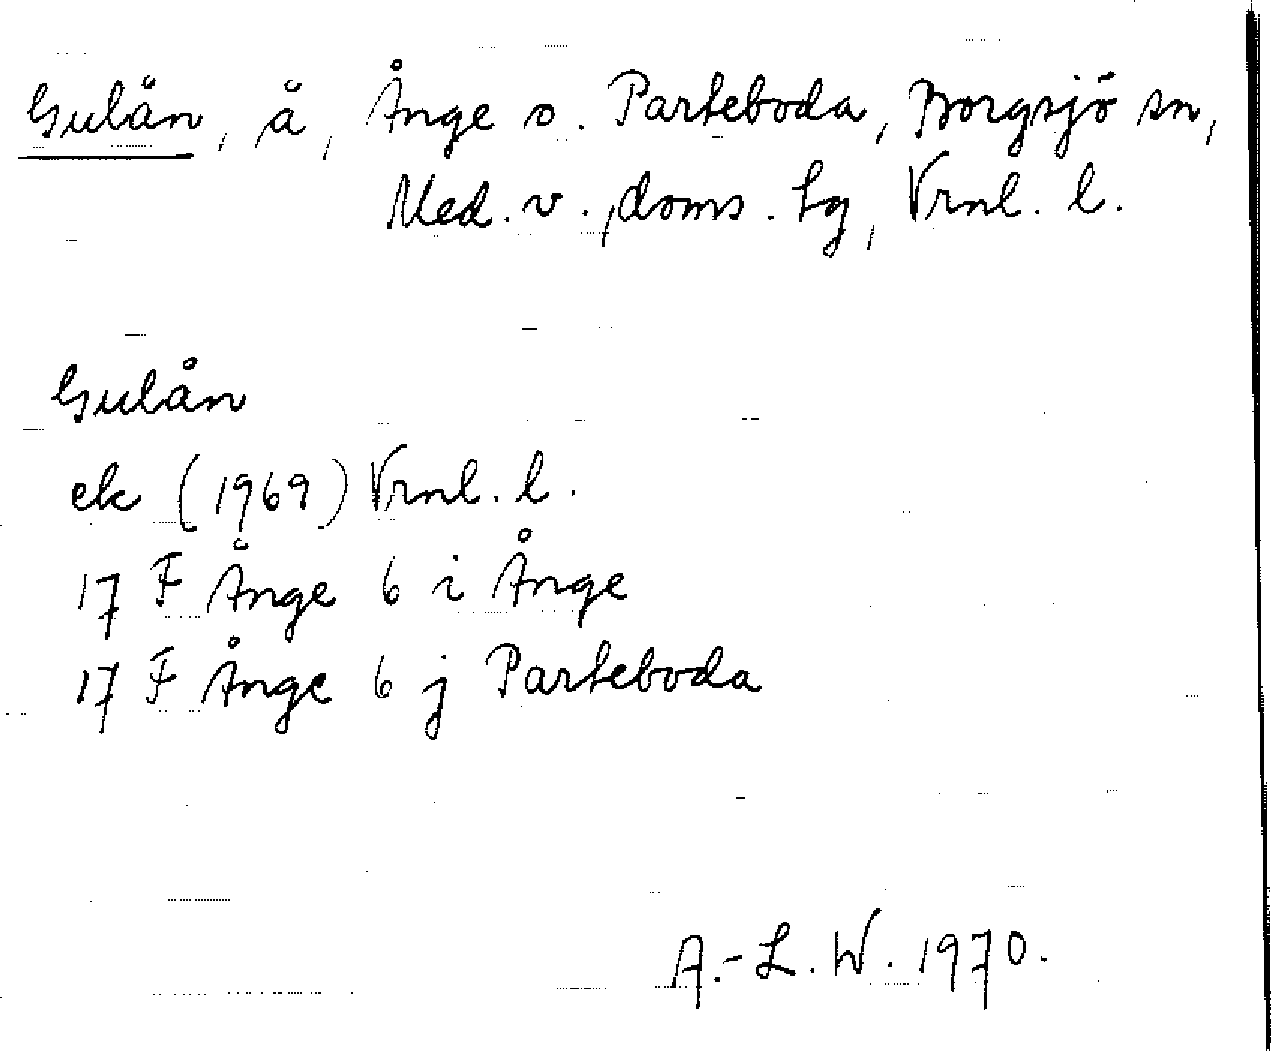 Gulån, å, Ånge o. Parteboda, Borgsjö sn,
Med. v., doms. tg, Vrnl. l.
Gulån
ek (1969) Vrnl. l.
17 F Ånge 6 i Ånge
17 F Ånge 6 j Parteboda
A.-L. W. 1970.